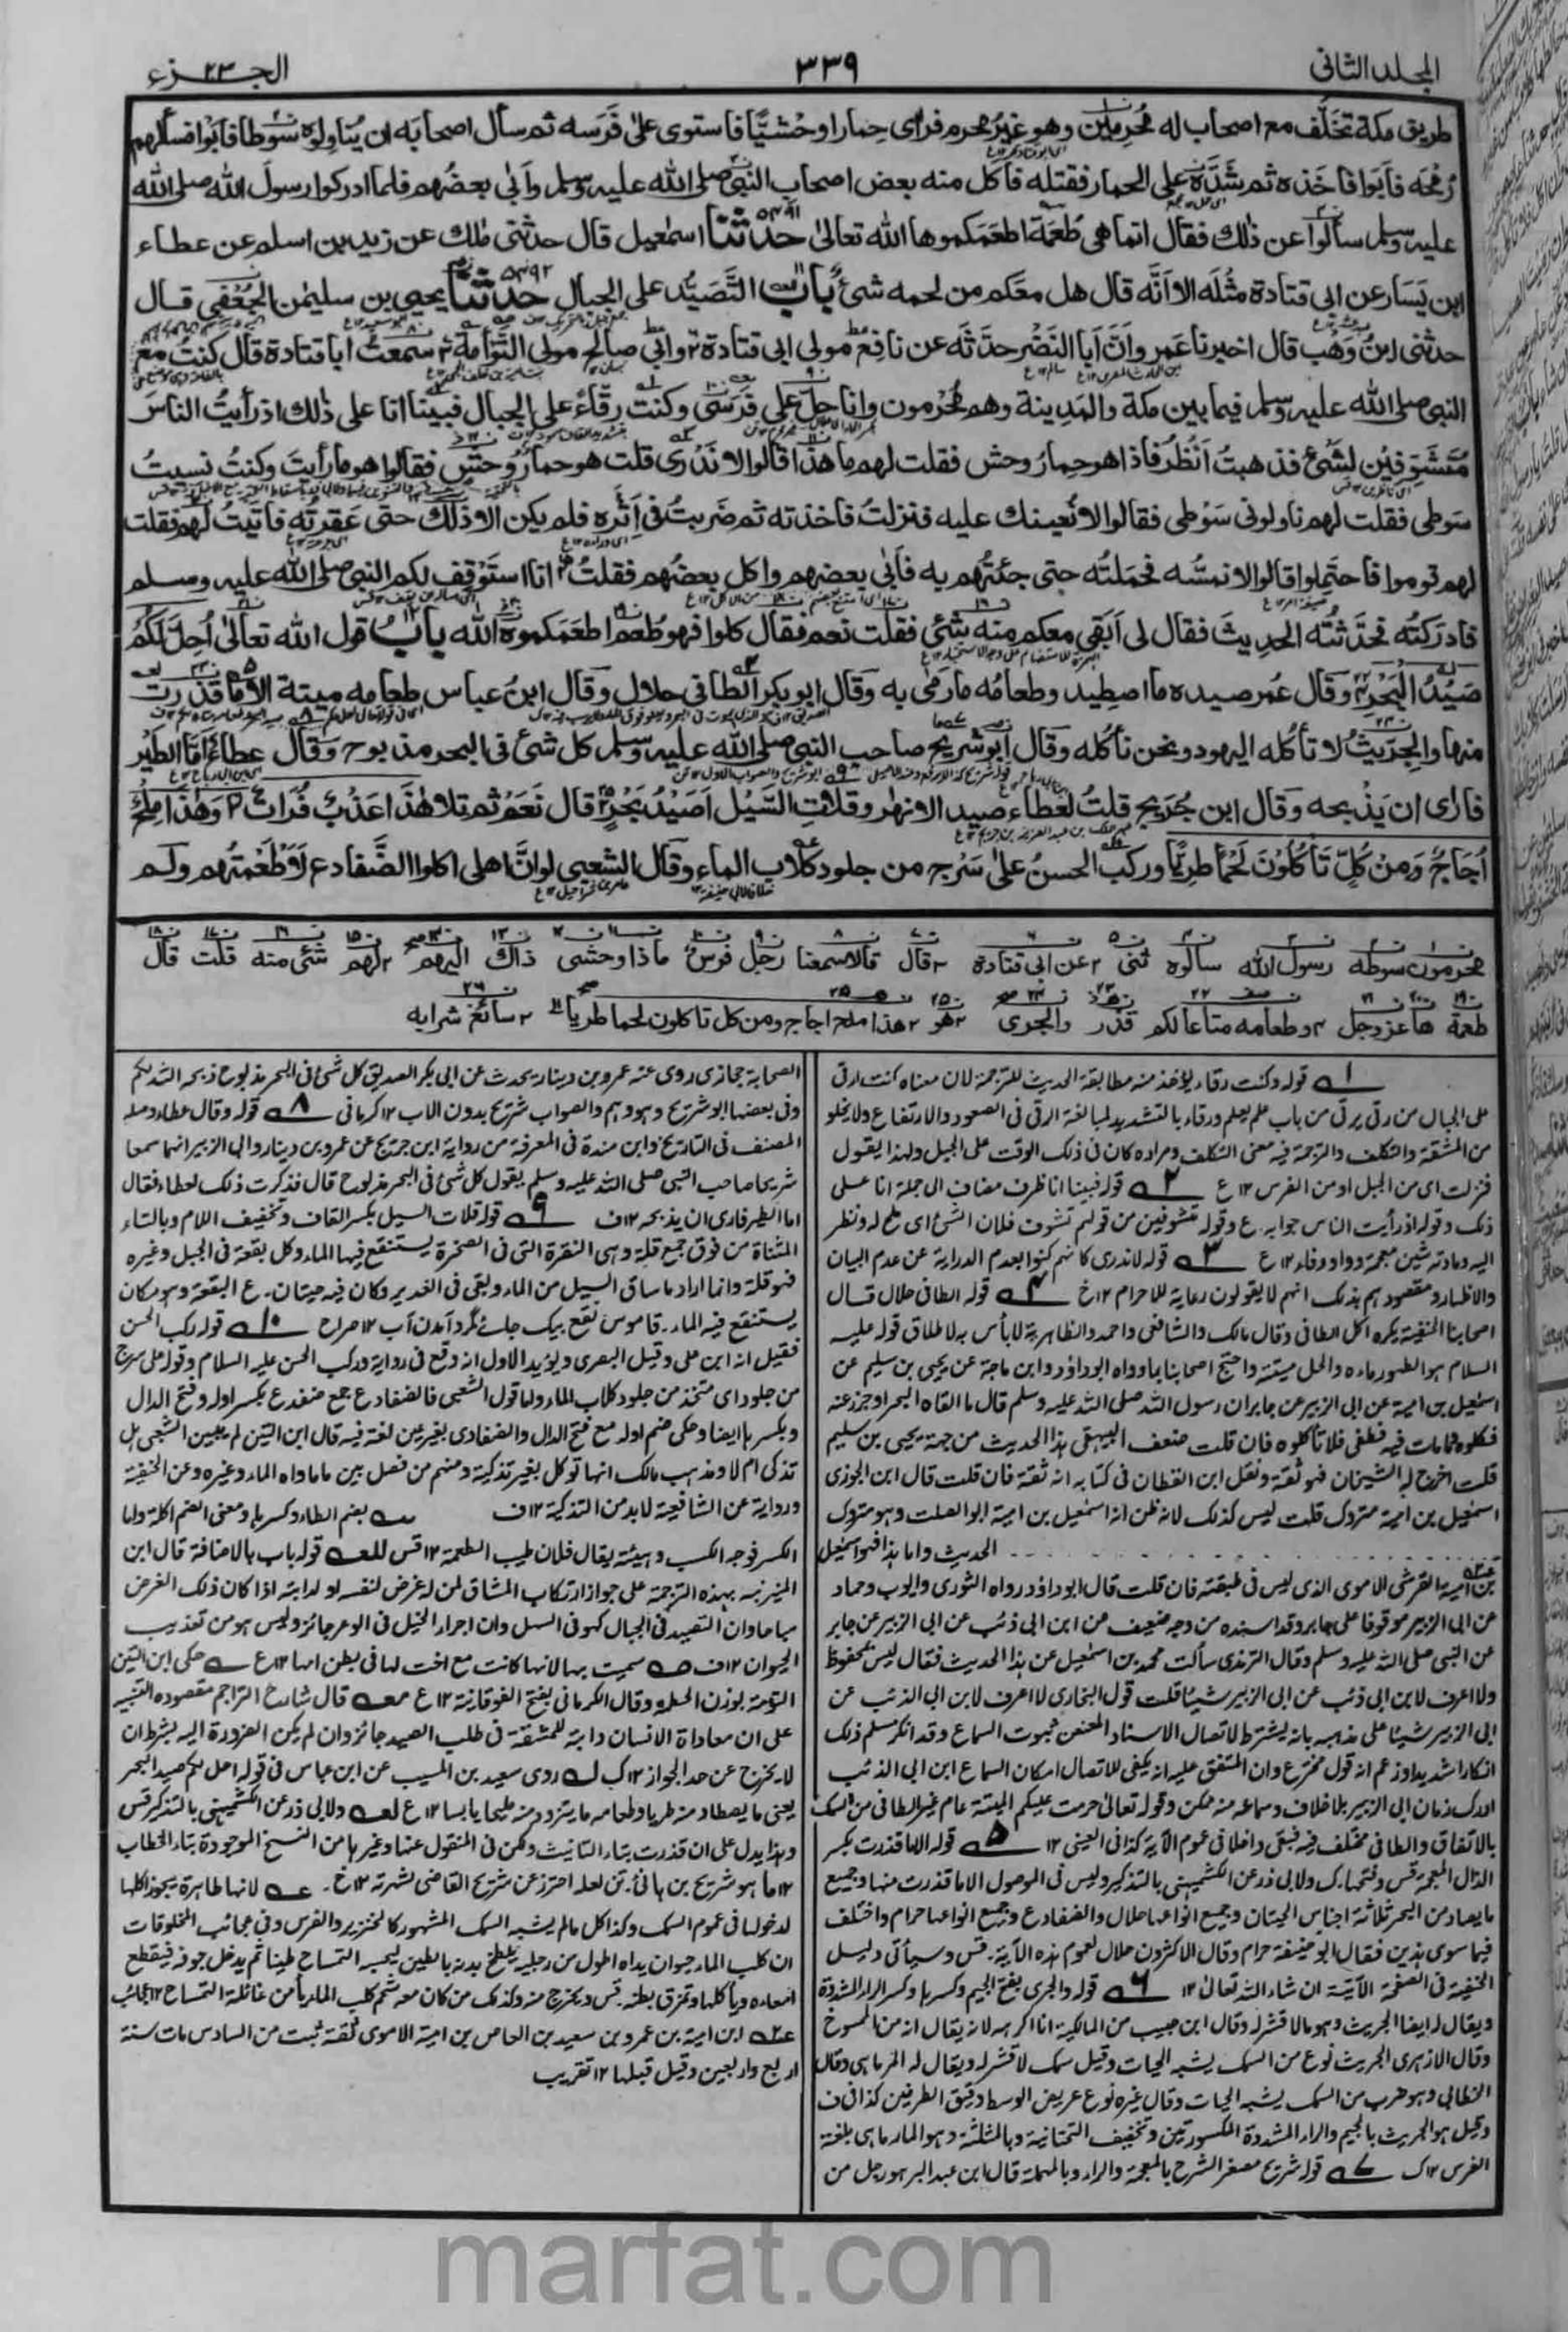 المجلد الثانی
٣٣٩
الجــــزء ٢٣
طریق مكة تخلّف مع اصحاب له مُحرِمِین وهو غیرُ محرم فرای حِمارا وحْشیًّا فاستوی علیٰ فَرَسه ثم سأل اصحابَه ان یُناوِلوہ سَوطا فابَوا فسألهم
رُمحَه فابَوا فاخَذہ ثم شَدَّ علی الحمار فقتله فاكل منه بعض اصحاب النبی صلی الله علیه وسلم وأبٰی بعضُهم فلما ادركوا رسولَ الله صلی الله
علیه وسلم سألوا عن ذٰلك فقال انما هی طُعمَة اطعَمَكموها الله تعالیٰ حدثنا اسمٰعیل قال حدثنی مٰلك عن زید بن اسلم عن عطاء
ابن یَسَار عن ابی قتادة مثْلَه الا اَنَّه قال هل معَكم من لحمه شئ باب التَّصَیُّد علی الجبال حدثنا یحیی بن سلیمٰن الجُعْفِی قال
حدثنی ابنُ وَهْب قال اخبرنا عَمرو اَنّ اَبا النَضْر حدَّثَه عن نافِع مولٰی ابی قتادة وابی صالح مولی التَّوْأمة سمعتُ ابا قتادة قال كنتُ مع
النبی صلی الله علیه وسلم فیما بین مكة والمَدِینة وهم مُحْرِمون وانا حِلّ علٰی فَرَسی وكنت رقّاءً علی الجبال فبینا انا علی ذٰلك اذ رأیتُ الناسَ
مُتَشَوِفِیْن لشَئ فذهبتُ اَنْظُرُ فاذا هو حِمارُ وحش فقلت لهم ما هٰذا قالوا لا نَدْرِی قلت هو حمارٌ وحْشٍ فقالوا هو ما رأیتَ وكنتُ نسیتُ
سَوطی فقلت لهم ناولونی سَوْطی فقالوا لا نُعینك علیه فنزلتُ فاخذته ثم ضَربتُ فی اَثَرِہ فلم یكن الا ذٰلك حتی عَقرتُه فاتَیتُ الَهم فقلت
لهم قوموا فاحتَمِلوا قالوا لا نَمَسُّه فحَمَلتُه حتی جئتُهم به فأبٰی بعضهم واكل بعضُهم فقلتُ انا اسْتَوْقِف لكم النبی صلی الله علیه وسلم
فادرَكتُه فحَدَّثْتُه الحدیثَ فقال لی اَبَقِی معكم منه شئ فقلت نعم فقال كلوا فهو طُعْم اطعَمَكموہ الله باب قول الله تعالیٰ اُحِلَّ لَكُمْ
صَیْدُ الْبَحْرِ وقال عُمر صیدہ ما اصطِید وطعامُه ما رَمٰی به وقال ابو بكر الطافی حلال وقال ابنُ عباس طعامه میتة الا ما قَذِرتَ
منها والجِرِّیثُ لا تأكله الیهود ونحن نأكله وقال ابو شُریح صاحب النبی صلی الله علیه وسلم كل شئ فی البحر مذبوح وقال عطاءٌ اَمّا الطَیْر
فارٰی ان یَذْبحه وقال ابن جُرَیج قلتُ لعَطاء صید الانهٰر وقِلاتِ السَّیْل اَصَیْدُ بَحْرٍ قال نَعَمْ ثم تلا هٰذَا عَذْبٌ فُرَاتٌ وَهٰذَا مِلْحٌ
اُجَاجٌ وَمِنْ كُلٍّ تَأْكُلُوْنَ لَحْمًا طَرِیًّا وركب الحسنُ علیٰ سَرْج من جلود كلاب الماء وقال الشعبی لو انَّ اهلی اكلوا الضَّفادع لَاَطْعَمْتُهم ولم
محرمون سوطه رسول الله سألوہ ثنی عن ابی قتادة قال قالا سمعنا رجل فرس ماذا وحشی ذاك الیهم لهم شئ منه قلت قال
طعمة ها عزوجل وطعامه متاعا لكم قذر والجری هو هذا ملح اجاج ومن كل تاكلون لحما طریا سائغ شرابه
قوله وكنت رقاء یؤخذ منه مطابقة الحدیث للترجمة لان معناہ كنت ارقی
علی الجبال من رقی یرقی من باب علم یعلم ورقاء بالتشدید لمبالغة الرقی فی الصعود والارتفاع ولا یخلو
من المشقة والتكلف والترجمة فیه معنی التكلف ومرادہ كان فی ذلك الوقت علی الجبل ولهذا یقول
فنزلت ای من الجبل او من الفرس ١٢ ع قوله فبینا انا ظرف مضاف الی جملة انا علی
ذلك وقوله اذ رأیت الناس جوابه ع وقوله متشوفین من قولهم تشوف فلان الشئ ای طمح له ونظر
الیه ومادته شین معجمة وواو وفاء ١٢ ع قوله لا ندری كانهم كنوا بعدم الدرایة عن عدم البیان
والاظهار ومقصودهم بذلك انهم لا یقولون رعایة للاحرام ١٢ خ قوله الطافی حلال قال
اصحابنا الحنفیة یكرہ اكل الطافی وقال مالك والشافعی واحمد والظاهریة لا بأس به لاطلاق قوله علیه
السلام هو الطهور ماءہ والحل میتته واحتج اصحابنا بما رواہ ابو داؤد وابن ماجة عن یحیی بن سلیم عن
اسمٰعیل بن امیة عن ابی الزبیر عن جابر ان رسول الله صلی الله علیه وسلم قال ما القاہ البحر او جزر عنه
فكلوہ وما مات فیه فطفی فلا تأكلوہ فان قلت ضعف البیهقی هذا الحدیث من جهة یحیی بن سلیم
قلت اخرج له الشیخان فهو ثقة ونقل ابن القطان فی كتابه انه ثقة فان قلت قال ابن الجوزی
اسمٰعیل بن امیة متروك قلت لیس كذلك لانه ظن انه اسمٰعیل بن امیة ابو الصلت وهو متروك
الحدیث واما هذا فهو اسمٰعیل
بن امیة القرشی الاموی الذی لیس فی طبقته فان قلت قال ابو داؤد رواہ الثوری وایوب وحماد
عن ابی الزبیر موقوفا علی جابر وقد اسندہ من وجه ضعیف عن ابن ابی ذئب عن ابی الزبیر عن جابر
عن النبی صلی الله علیه وسلم وقال الترمذی سألت محمد بن اسمٰعیل عن هذا الحدیث فقال لیس بمحفوظ
ولا اعرف لابن ابی ذئب عن ابی الزبیر شیئا قلت قول البخاری لا اعرف لابن ابی الذئب عن
ابی الزبیر شیئا علی مذهبه بانه یشترط لاتصال الاسناد المعنعن ثبوت السماع وقد انكر مسلم ذلك
انكارا شدیدا وزعم انه قول مخترع وان المتفق علیه انه یكفی للاتصال امكان السماع ابن ابی الذئب
ادرك زمان ابی الزبیر بلا خلاف وسماعه منه ممكن وقوله تعالیٰ حرمت علیكم المیتة عام غیر الطافی من السمك
بالاتفاق والطافی مختلف فیه فبقی داخلا فی عموم الآیة كذا فی العینی ١٢ قوله الا ما قذرت بكسر
الذال المعجمة قس وفتحها ك ولابی ذر عن الكشمیهنی بالتذكیر ولیس فی الموصول الا ما قذرت منها وجمیع
ما یصاد من البحر ثلاثة اجناس الحیتان وجمیع انواعها حلال والضفادع وجمیع انواعها حرام واختلف
فیما سوی هذین فقال ابو حنیفة حرام وقال الاكثرون حلال لعموم هذہ الآیة قس وسیأتی دلیل
الحنفیة فی الصفحة الآتیة ان شاء الله تعالیٰ ١٢ قوله والجری بفتح الجیم وكسرها وكسر الراء المشددة
ویقال له ایضا الجریث وهو ما لا قشر له وقال ابن حبیب من المالكیة انا اكرهه لانه یقال انه من الممسوخ
وقال الازهری الجریث نوع من السمك یشبه الحیات وقیل سمك لا قشر له ویقال له المرماهی وقال
الخطابی وهو ضرب من السمك یشبه الحیات وقال غیرہ نوع عریض الوسط دقیق الطرفین كذا فی ف
وقیل هو الجریث بالجیم والراء المشددة المكسورتین وتخفیف التحتانیة وبالمثلثة وهو المارماهی بلغة
الفرس ١٢ ك قوله شریح مصغر الشرح بالمعجمة والراء وبالمهملة قال ابن عبد البر هو رجل من
الصحابة حجازی روی عنه عمرو بن دینار یحدث عن ابی بكر الصدیق كل شئ فی البحر مذبوح ذبحه الله لكم
وفی بعضها ابو شریح وهو وهم والصواب شریح بدون الاب ١٢ كرمانی قوله وقال عطاء وصله
المصنف فی التاریخ وابن مندة فی المعرفة من روایة ابن جریج عن عمرو بن دینار وابی الزبیر انهما سمعا
شریحا صاحب النبی صلی الله علیه وسلم یقول كل شئ فی البحر مذبوح قال فذكرت ذلك لعطاء فقال
اما الطیر فاری ان یذبحه ١٢ ف قوله قلات السیل بكسر القاف وتخفیف اللام وبالتاء
المثناة من فوق جمع قلة وهی النقرة التی فی الصخرة یستنقع فیها الماء وكل بقعة فی الجبل وغیرہ
فهو قلة وانما اراد ما ساق السیل من الماء وبقی فی الغدیر وكان فیه حیتان ع البقعة وهو مكان
یستنقع فیه الماء قاموس نقع بیك جائے گرد آمدن آب ١٢ صراح قوله ركب الحسن
فقیل انه ابن علی وقیل البصری ویؤید الاول انه وقع فی روایة وركب الحسن علیه السلام وقوله علی سرج
من جلود ای متخذ من جلود كلاب الماء واما قول الشعبی فالضفادع جمع ضفدع بكسر اوله وفتح الدال
وبكسرها ایضا وحكی ضم اوله مع فتح الدال والضفادی بغیر عین لغة فیه قال ابن التین لم یبین الشعبی هل
تذكی ام لا ومذهب مالك انها تؤكل بغیر تذكیة ومنهم من فصل بین ما ماواہ الماء وغیرہ وعن الحنفیة
وروایة عن الشافعیة لابد من التذكیة ١٢ ف بضم الطاء وكسرها ومعنی الضم اكلة واما
الكسر فوجه الكسب وهیئته یقال فلان طیب الطعمة ١٢ قس قوله باب بالاضافة قال ابن
المنیر نبه بهذہ الترجمة علی جواز ارتكاب المشاق لمن له غرض لنفسه او لدابته اذا كان ذلك الغرض
مباحا وان التصید فی الجبال كهو فی السهل وان اجراء الخیل فی الوعر جائز ولیس هو من تعذیب
الحیوان ١٢ ف سمیت بها لانها كانت مع اخت لها فی بطن امها ١٢ ع حكی ابن التین
التومة بوزن الحطمة وقال الكرمانی بفتح الفوقانیة ١٢ ع قال شارح التراجم مقصودہ التنبیه
علی ان معاداة الانسان دابته للمشقة فی طلب الصید جائز وان لم یكن الضرورة الیه بشرط ان
لا یخرج عن حد الجواز ١٢ ك روی سعید بن المسیب عن ابن عباس فی قوله احل لكم صید البحر
یعنی ما یصطاد منه طریا وطعامه ما یتزود منه ملیحا یابسا ١٢ ع ولابی ذر عن الكشمیهنی بالتذكیر قس
وهذا یدل علی ان قذرت بتاء التانیث ولكن فی المنقول عنها وغیرها من النسخ الموجودة بتاء الخطاب
١٢ هو شریح بن هانئ لعله احترز عن شریح القاضی لشهرته ١٢ خ لانها طاهرة یجوز اكلها
لدخولها فی عموم السمك وكذا كل ما لم یشبه السمك المشهور كالخنزیر والفرس وفی عجائب المخلوقات
ان كلب الماء حیوان یداہ اطول من رجلیه یلطخ بدنه بالطین لیحسبه التمساح طینا ثم یدخل جوفه فیقطع
امعاءہ ویأكلها وتمزق بطنه قس ویخرج منه وكذلك من كان معه شحم كلب الماء یأمن من غائلة التمساح ١٢ عجائب
ابن امیة بن عمرو بن سعید بن العاص بن امیة الاموی ثقة ثبت من السادس مات سنة
اربع واربعین وقیل قبلها ١٢ تقریب
marfat.com